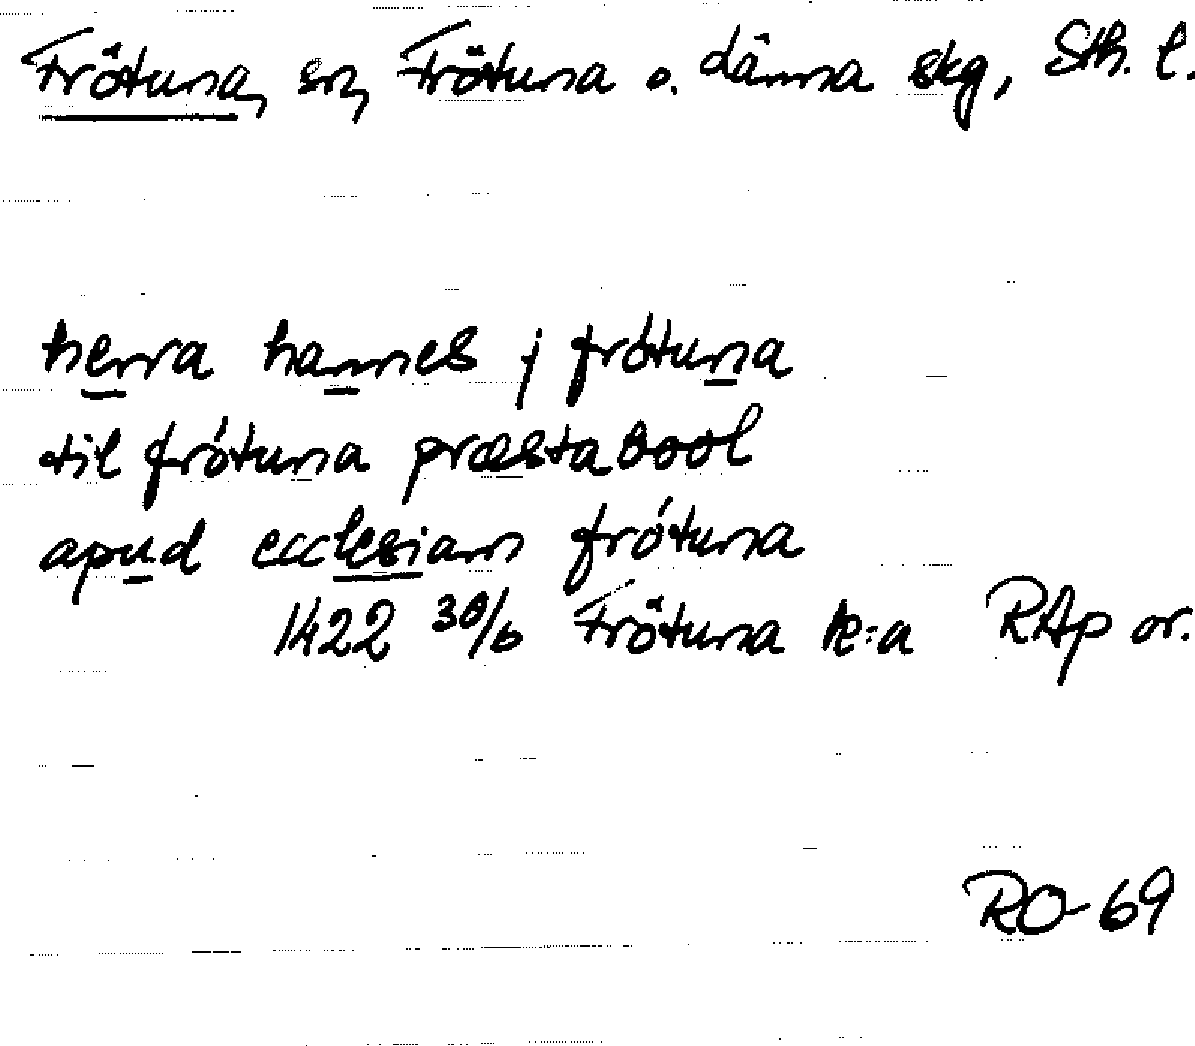 Frötuna, sn, Frötuna o. Länna skg, Sth. l.
herra hannes j frótuna
til frótuna præstabool
apud ecclesiam frótuna
1422 30/6 Frötuna k:a RAp or.
RO-69